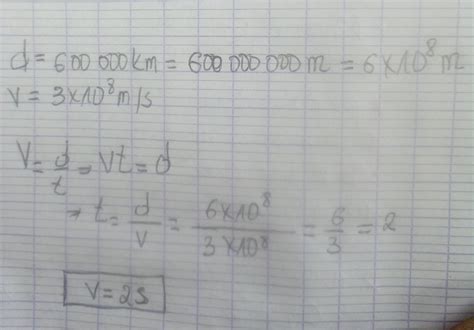 d = 600 000 km = 600 000 000 m = 6×10⁸ m
V = 3×10⁸ m/s
V = d/t → Vt = d
→ t = d/V = 6×10⁸/3×10⁸ = 6/3 = 2
V = 2s